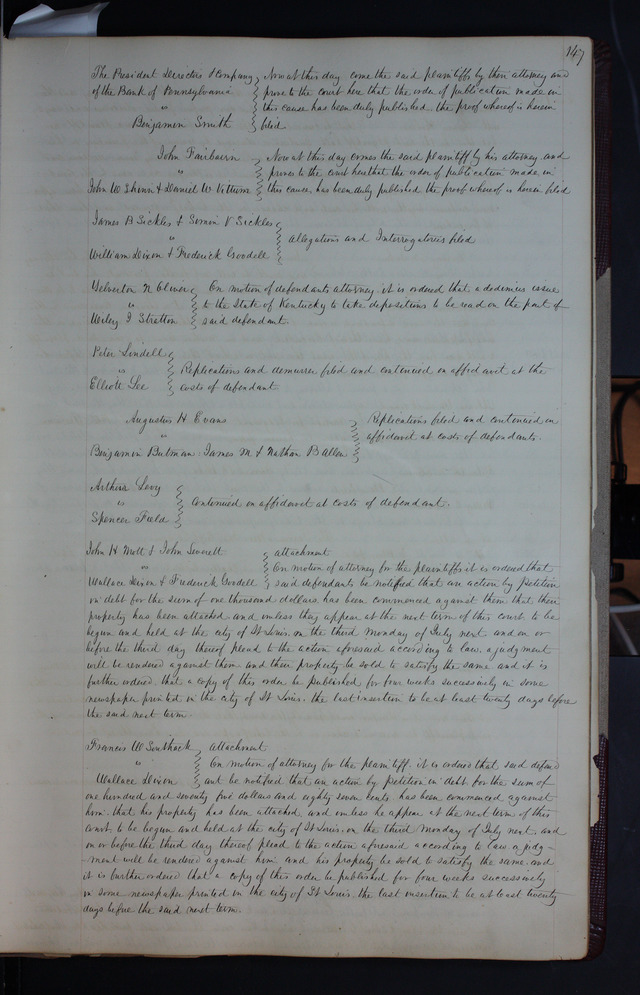 147
The President Directors & Company } Now at this day come the said plaintiffs by their attorney and
of the Bank of Pennsylvania } prove to the court here that the order of publication made in
" } this cause has been duly published the proof whereof is herein
Benjamin Smith } filed
John Fairbairn } Now at this day comes the said plaintiff by his attorney and
" } proves to the court here that the order of publication made in
John W Shinn & Daniel W Vittum } this cause has been duly published the proof whereof is herein filed
James B Sickles & Simon V Sickles }
" } allegations and Interrogatories filed
William Dixon & Frederick Goodell }
Yelverton N Oliver } On motion of defendants attorney it is ordered that a dedimus issue
" } to the State of Kentucky to take depositions to be read on the part of
Wesley J Stratton } said defendant.
Peter Lindell }
" } Replications and demurrer filed and continued on affidavit at the
Elliott Lee } costs of defendant
Augustus H Evans } Replications filed and continued on
" } affidavit at costs of defendants.
Benjamin Butman James M & Nathan B Allen }
Arthur Levy }
" } Continued on affidavit at costs of defendant.
Spencer Field }
John H Mott & John Leverett } attachment
" } On motion of attorney for the plaintiffs it is ordered that
Wallace Dixon & Frederick Goodell } said defendants be notified that an action by petition
in debt for the sum of one thousand dollars has been commenced against them that their
property has been attached and unless they appear at the next term of this court to be
begun and held at the city of St Louis. on the third Monday of July next and on or
before the third day thereof plead to the action aforesaid according to law. a judgment
will be rendered against them and their property be sold to satisfy the same and it is
further ordered that a copy of this order be published for four weeks sucessively in some
newspaper printed in the city of St Louis. the last insertion to be at least twenty days before
the said next term.
Francis W Southack } attachment
" } On motion of attorney for the plaintiff. it is ordered that said defend
Wallace Dixon } ant be notified that an action by petition in debt for the sum of
one hundred and seventy five dollars and eighty seven cents has been commenced against
him. that his property has been attached and unless he appear at the next term of this
court to be begun and held at the city of St Louis. on the third Monday of July next. and
on or before the third day thereof plead to the action aforesaid according to law a judg-
-ment will be rendered against him and his property be sold to satisfy the same. and
it is further ordered that a copy of this order be published for four weeks successively
in some newspaper printed in the city of St Louis. the last insertion to be at least twenty
days before the said next term.